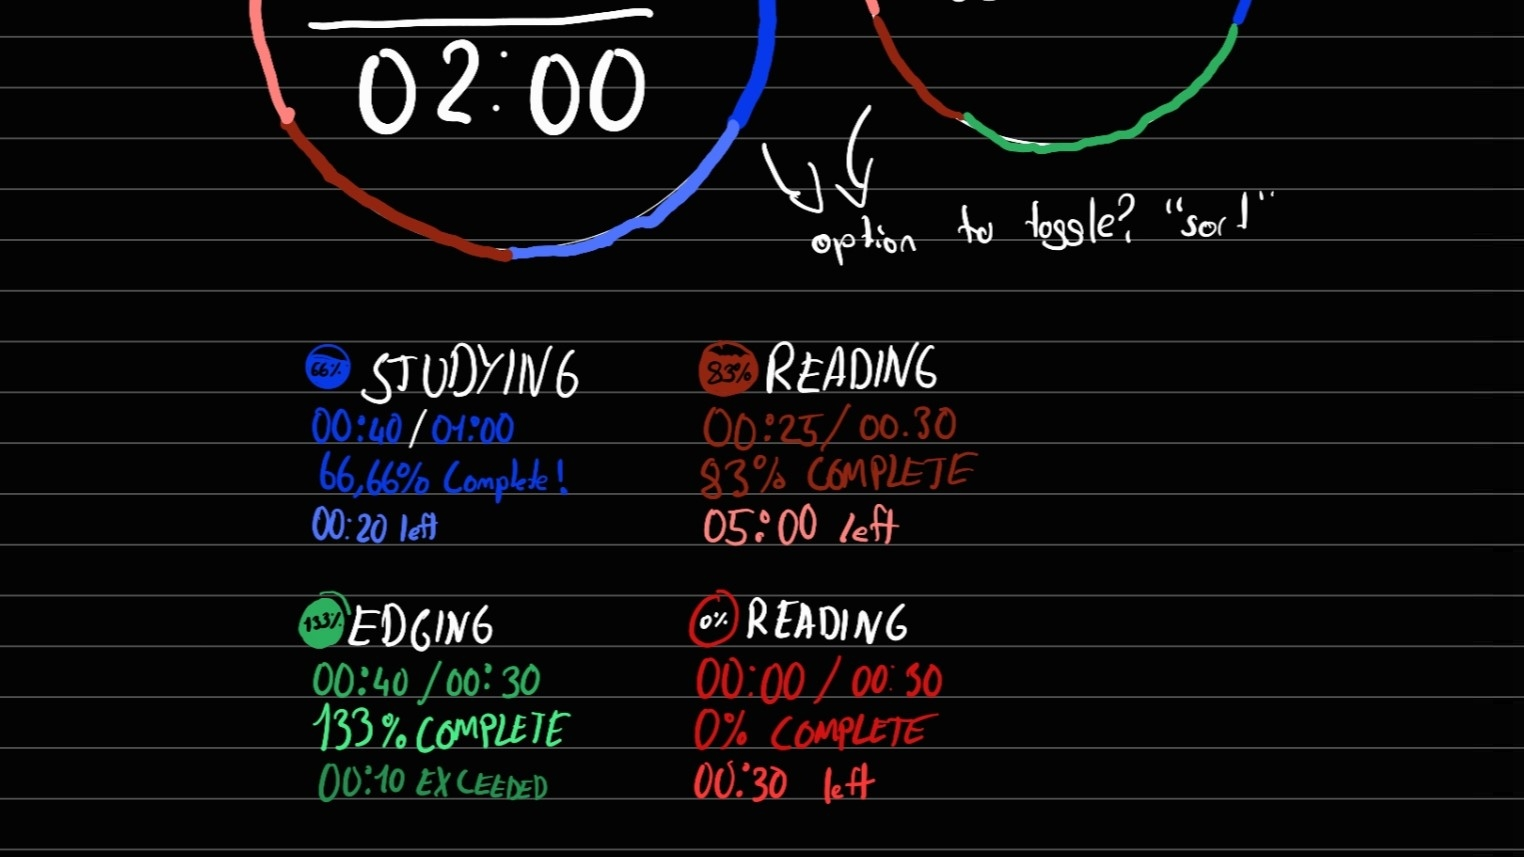 02:00
option to toggle? "sort"
66% STUDYING
00:40 / 01:00
66,66% Complete!
00:20 left
83% READING
00:25 / 00.30
83% COMPLETE
05:00 left
133% EDGING
00:40 / 00:30
133% COMPLETE
00:10 EXCEEDED
0% READING
00:00 / 00:30
0% COMPLETE
00:30 left